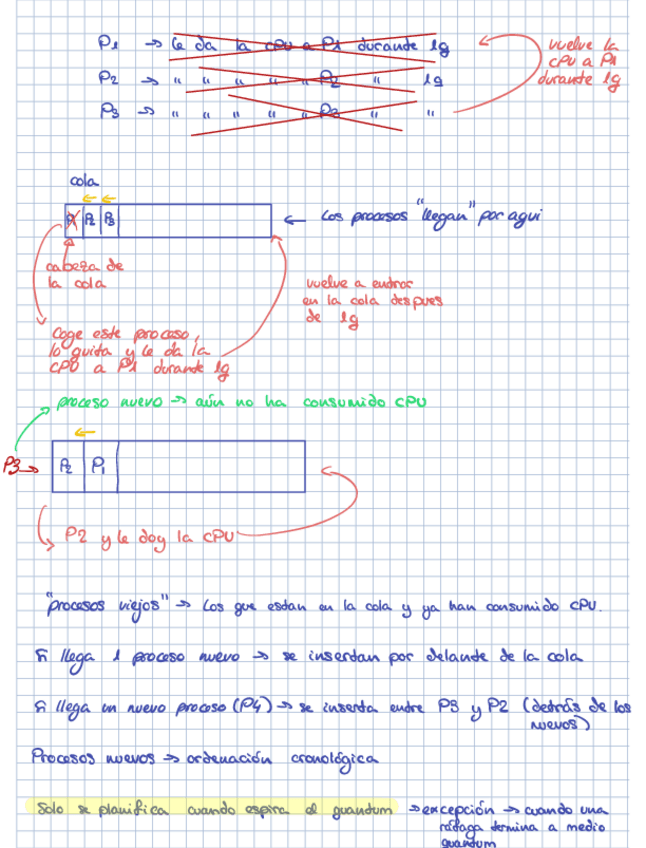 P1 → Le da la cpu a P1 durante 1q
vuelve la
cpu a P1
durante 1q
P2 → " " " " P2 " 1q
P3 → " " " " P3 " "
cola
P1 P2 P3
← Los procesos "llegan" por aqui
cabeza de
la cola
vuelve a entrar
en la cola despues
de 1q
Coge este proceso,
lo quita y le da la
CPU a P1 durante 1q
proceso nuevo → aún no ha consumido CPU
P3 →
P2 P1
P2 y le doy la CPU
"procesos viejos" → Los que estan en la cola y ya han consumido CPU.
Si llega 1 proceso nuevo → se insertan por delante de la cola
Si llega un nuevo proceso (P4) → se inserta entre P3 y P2 (detrás de los
nuevos)
Procesos nuevos → ordenación cronológica
Solo se planifica cuando expira el quantum → excepción → cuando una
ráfaga termina a medio
quantum